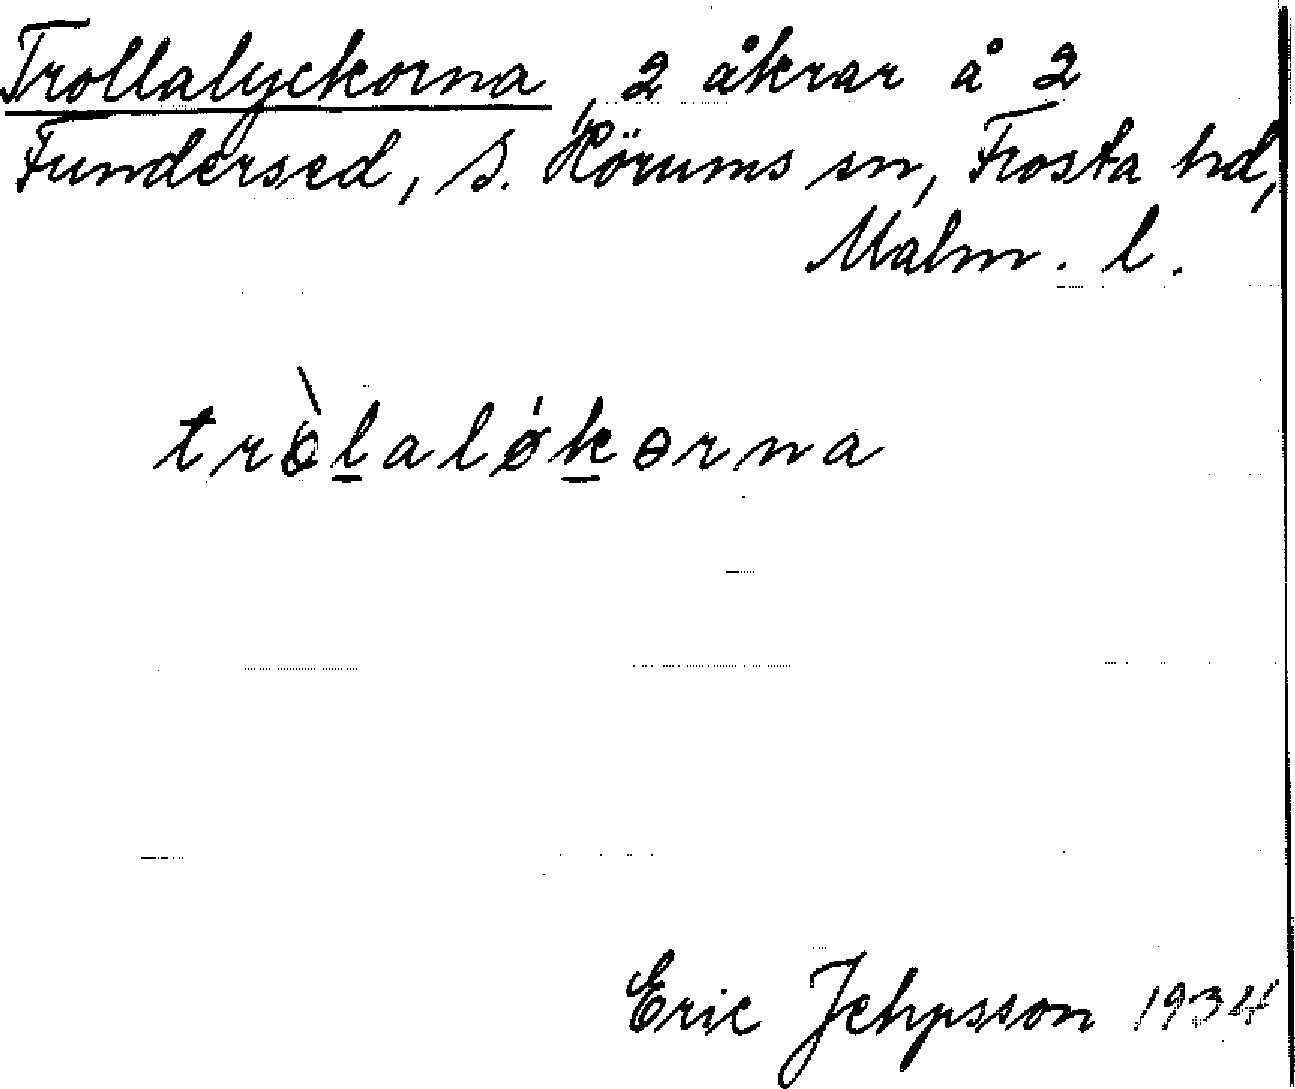 Trollalyckorna, 2 åkrar å 2
Fundersed, S. Hörums sn, Frosta hd,
Malm. l.
tròlaløkorna
Eric Jehpsson 1934